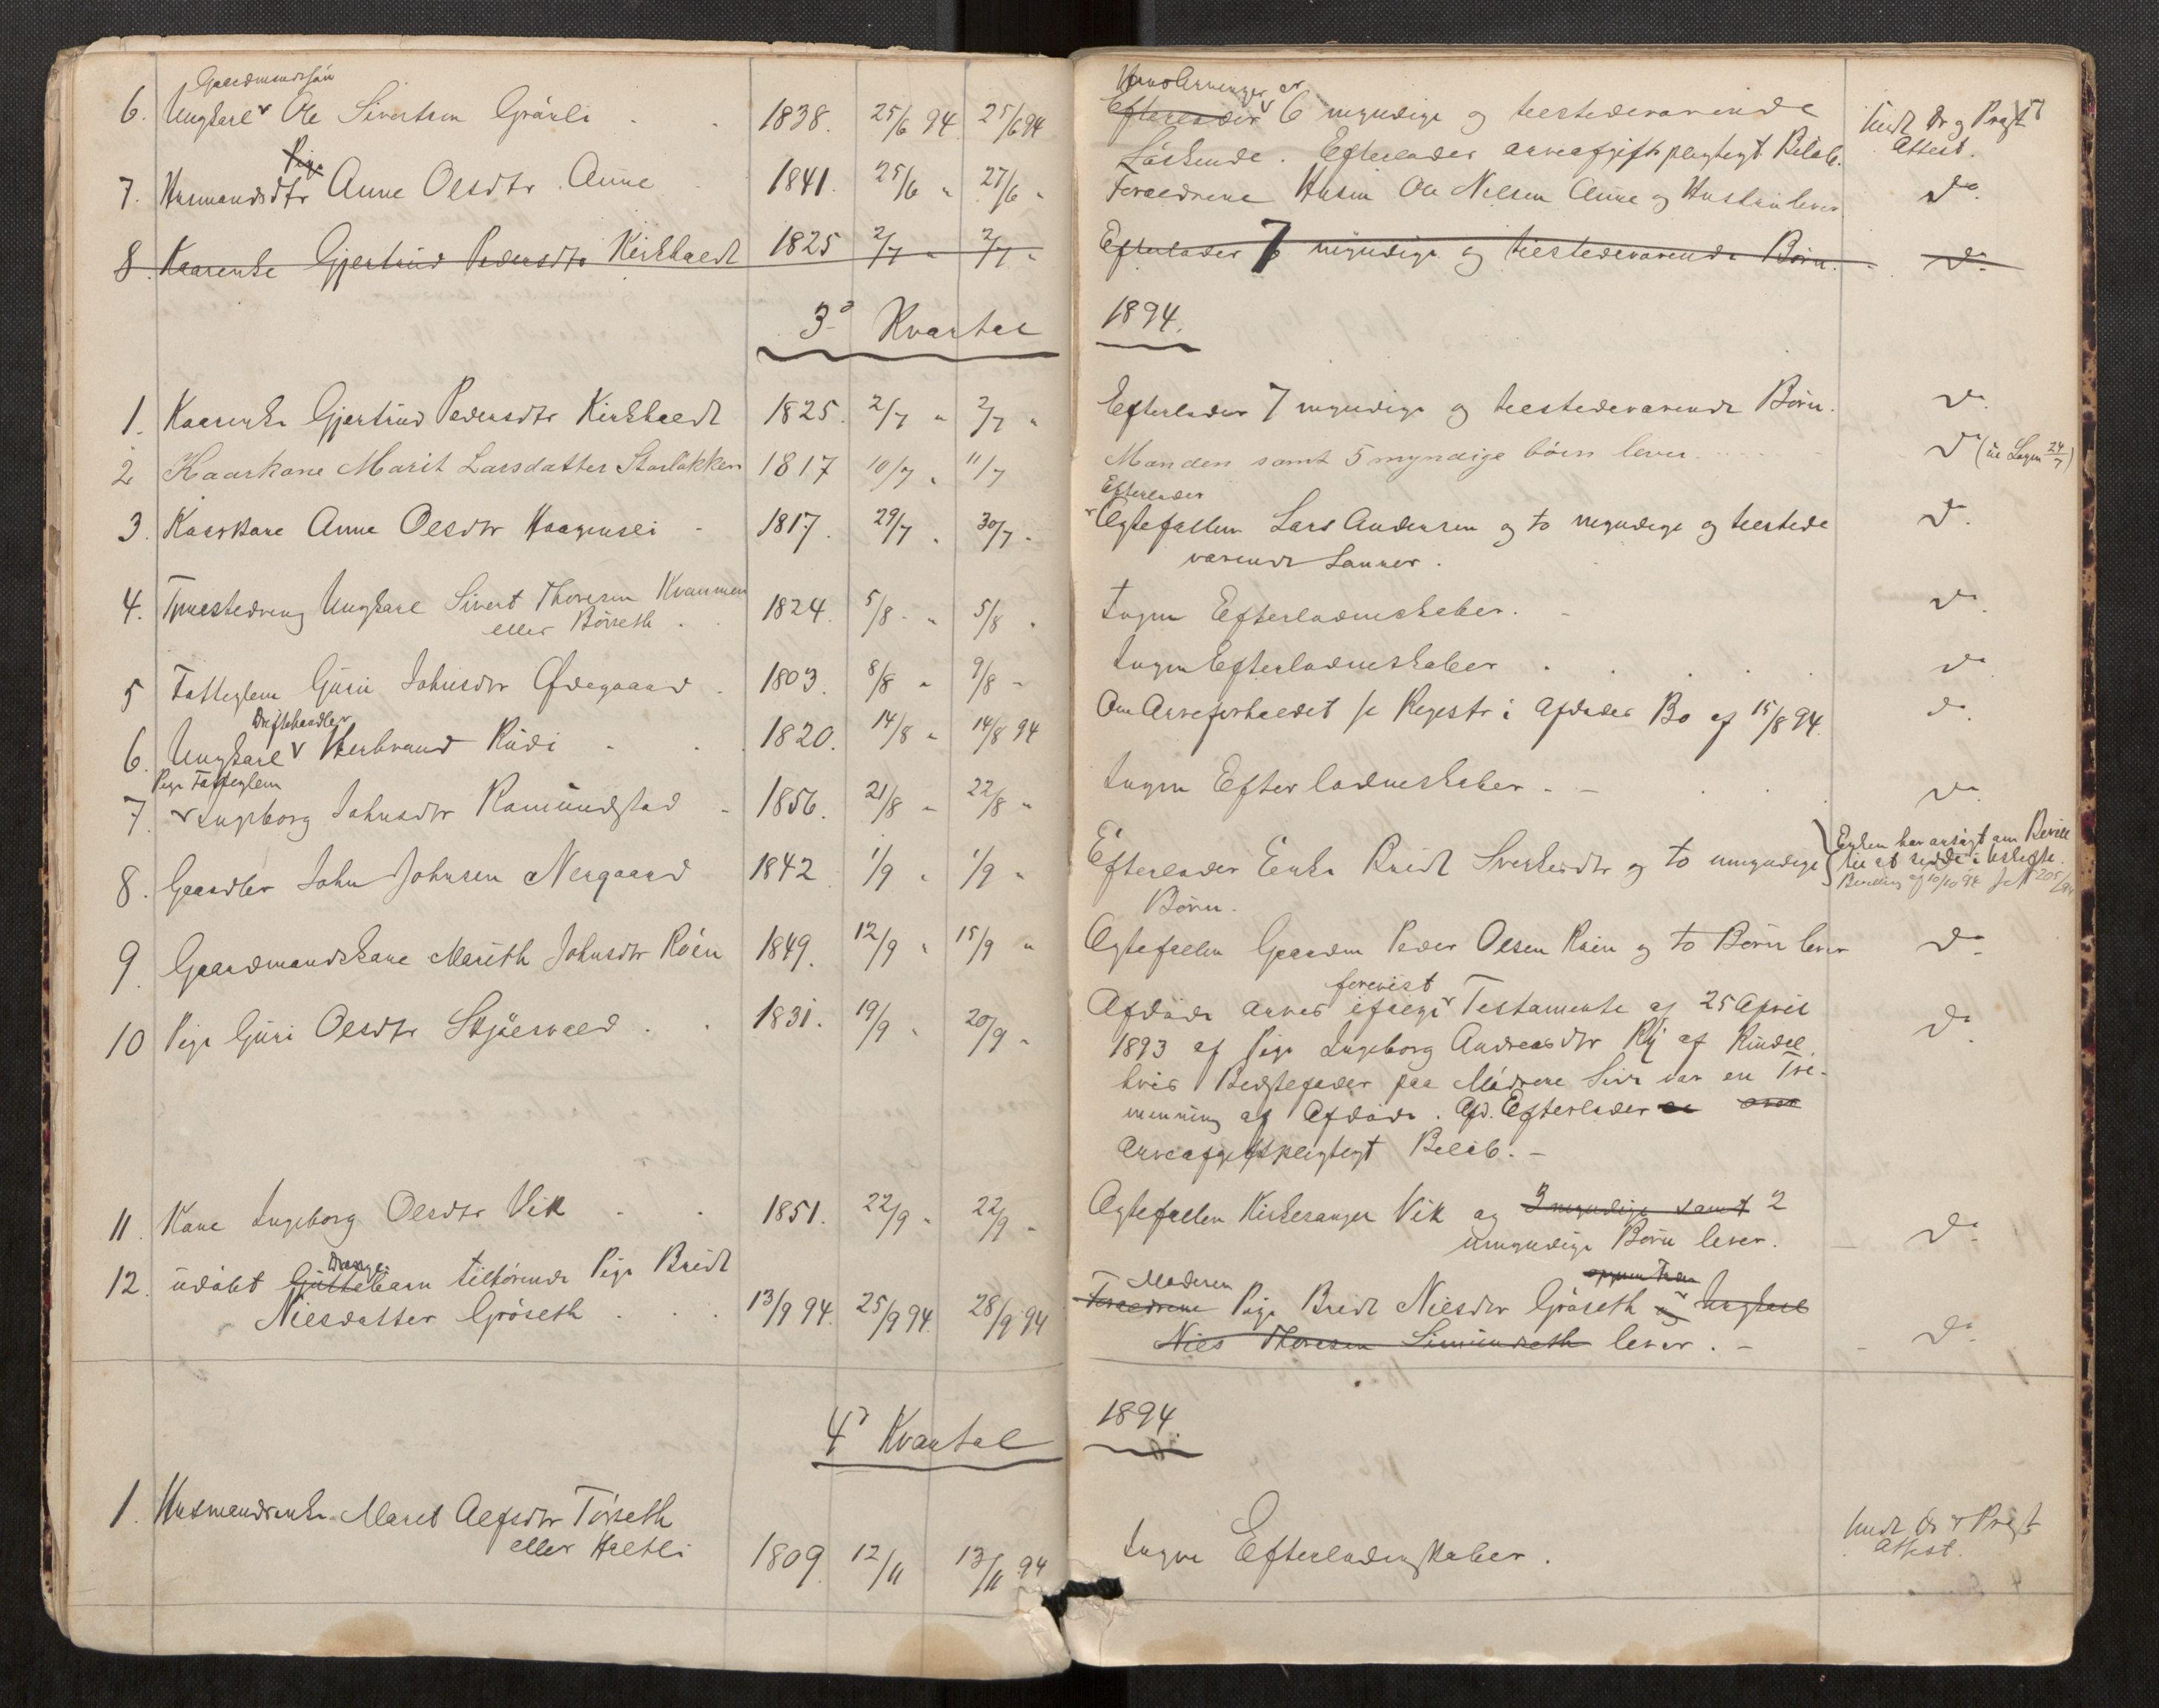 Gaardmandssøn
6. Ungkarl v Ole Sivertsen Grønli 1838. 25/6 94 25/6 94
Hans Arvinger er
Efterlader v 6 myndige og tilstedeværende
Søskende. Efterlader arveafgiftspligtigt Beløb.
Attest.
Pige
7. Husmandsdtr Anne Olsdtr Aune 1841. 25/6 " 27/6 "
Forældrene Husm Ole Nilsen Aune og Hustru lever
do.
8. Kaarenke Gjertrud Pedersdtr Kirkholt 1825 2/7 " 2/7 "
Efterlader 7 myndige og tilstedeværende Børn.
do.
3d Kvartal 1894.
1. Kaarenke Gjertrud Pedersdtr Kirkholt 1825. 2/7 " 2/7 "
Efterlader 7 myndige og tilstedeværende Børn.
do.
2 Kaarkone Marit Larsdatter Storløkken 1817 10/7 " 11/7
Manden samt 5 myndige børn lever
do (
24/7)
3. Kaarkone Anne Olsdtr Haagensli 1817. 29/7 " 30/7 "
Efterlader
v Ægtefællen Lars Andersen og to myndige og tilstede
værende Sønner.
do.
4. Tyvestedreng Ungkarl Sivert Thoresen Kvammen
eller Børseth 1824. 5/8 " 5/8 "
Ingen Efterladenskaber.
do.
5 Fattiglem Guri Johnsdtr Ødegaard 1803. 8/8 " 9/8 "
Ingen Efterladenskaber
do
Driftehandler
6. Ungkarl v Herbrand Rudi 1820. 14/8 " 14/8 94
Om Arveforholdet se Registr i Afdødes Bo af 15/8 94.
do.
Pige Fattiglem
7. v Ingeborg Johnsdtr Ramundstad 1856. 21/8 " 22/8 "
Ingen Efterladenskaber
do.
8. Gaardbr John Johnsen Nergaard 1842 1/9 " 1/9 "
Efterlader Enke Brit Sverkesdtr og to umyndige
Børn.
Enken har ansøgt om Bevill
til at sidde i uskifte.
Bevilling af 10/10 94 J.N 205/94
9 Gaardmandskone Marith Johnsdtr Roen 1849. 12/9 " 15/9 "
Ægtefællen Gaardm Peder Olsen Roen og to Børn lever
do.
10 Pige Guri Olsdtr Skjølsvold 1831. 19/9 " 20/9 "
forevist
Afdøde arves ifølge v Testamente af 25 April
1893 af Pige Ingeborg Andreasdtr Ry af Rindal
hvis Bedstefader paa Mødrene Side var en Tre-
menning af Afdøde. Afd. Efterlader
Arveafgiftspligtigt Beløb. -
do.
11 Kone Ingeborg Olsdtr Vik 1851. 22/9 " 22/9 "
Ægtefællen Kirkesanger Vik og 3 myndige samt 2
umyndige Børn lever.
do.
Drenge
12. udøbt Guttebarn tilhørende Pige Brit
Nilsdatter Grøseth 13/9 94. 25/9 94. 28/9 94
Moderen
Forældrene Pige Brit Nilsdtr Grøseth og Ungkarl
Nils Thoresen Simunseth lever. -
do.
4d Kvartal 1894.
1. Husmandsenke Marit Alfsdtr Tørseth
eller Haltli 1809. 12/11 13/11 94
Ingen Efterladenskaber.
Attest.